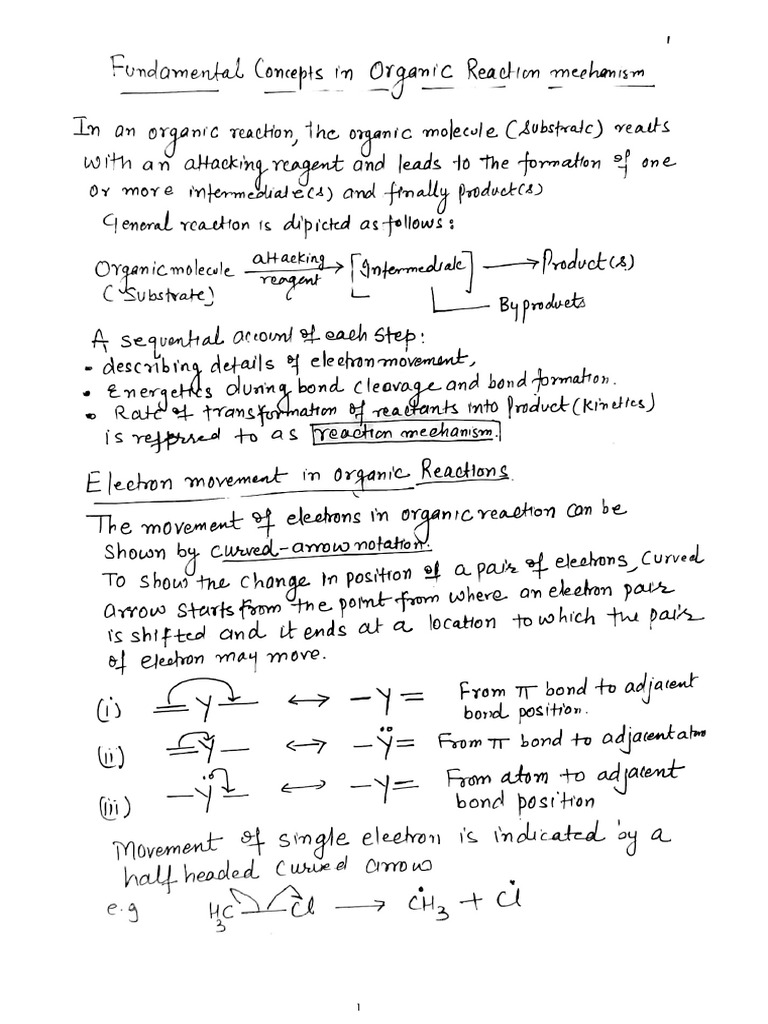 1
Fundamental Concepts in Organic Reaction mechanism
In an organic reaction, the organic molecule (Substrate) reacts
with an attacking reagent and leads to the formation of one
or more intermediate(s) and finally product(s)
General reaction is dipicted as follows:
Organic molecule attacking reagent → [Intermediate] → Product(s)
(Substrate) Byproducts
A sequential account of each step:
- describing details of electron movement,
• Energetics during bond cleavage and bond formation.
• Rate of transformation of reactants into product (kinetics)
is reffered to as reaction mechanism.
Electron movement in organic Reactions.
The movement of electrons in organic reaction can be
shown by curved-arrow notation.
To show the change in position of a pair of electrons, curved
arrow starts from the point from where an electron pair
is shifted and it ends at a location to which the pair
of electron may move.
(i) =Y— ↔ —Y= From π bond to adjacent
bond position.
(ii) =Y— ↔ —Ÿ= From π bond to adjacent atom
(iii) —Ÿ— ↔ —Y= From atom to adjacent
bond position
Movement of single electron is indicated by a
half headed curved arrow
e.g H₃C—Cl → ĊH₃ + Cl̇
1